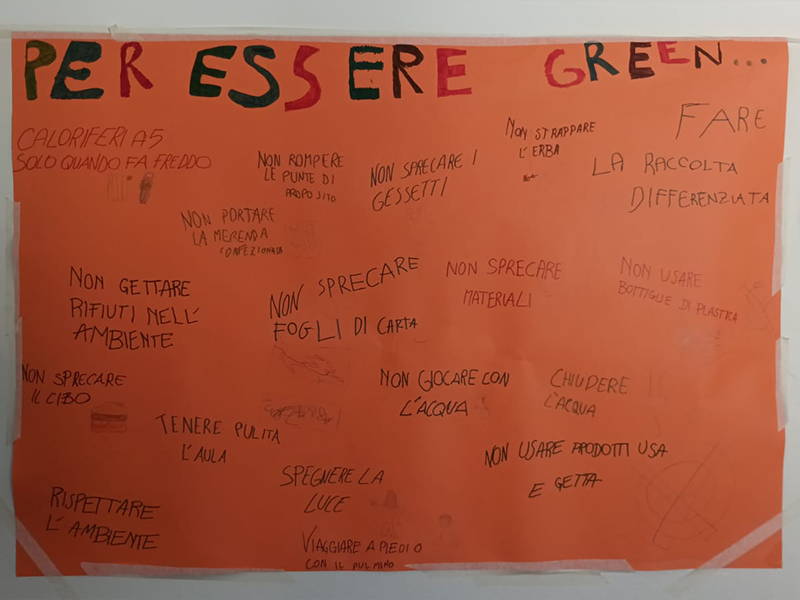 PER ESSERE GREEN...
CALORIFERI A 5
SOLO QUANDO FA FREDDO
NON ROMPERE
LE PUNTE DI
PROPOSITO
NON SPRECARE I
GESSETTI
NON STRAPPARE
L'ERBA
FARE
LA RACCOLTA
DIFFERENZIATA
NON PORTARE
LA MERENDA
CONFEZIONATA
NON GETTARE
RIFIUTI NELL'
AMBIENTE
NON SPRECARE
FOGLI DI CARTA
NON SPRECARE
MATERIALI
NON USARE
BOTTIGLIE DI PLASTICA
NON SPRECARE
IL CIBO
TENERE PULITA
L'AULA
NON GIOCARE CON
L'ACQUA
CHIUDERE
L'ACQUA
NON USARE PRODOTTI USA
E GETTA
SPEGNERE LA
LUCE
RISPETTARE
L'AMBIENTE
VIAGGIARE A PIEDI O
CON IL PULMINO